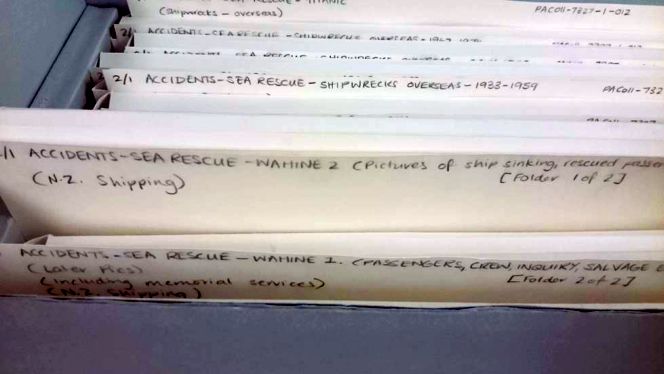 ACCIDENTS - SEA RESCUE - TITANIC
(Shipwrecks - overseas) PAColl-7327-1-012
2/1 ACCIDENTS-SEA RESCUE - SHIPWRECKS OVERSEAS -
ACCIDENTS - SEA RESCUE - SHIPWRECKS OVERSEAS
2/1 ACCIDENTS-SEA RESCUE - SHIPWRECKS OVERSEAS - 1933-1959 PAColl-732
/1 ACCIDENTS-SEA RESCUE - WAHINE 2 (Pictures of ship sinking, rescued passen
(N.Z. Shipping) [Folder 1 of 2]
ACCIDENTS - SEA RESCUE - WAHINE 1. (PASSENGERS, CREW, INQUIRY, SALVAGE E
(Later Pics)
(including memorial services) [Folder 2 of 2]
(N.Z. Shipping)